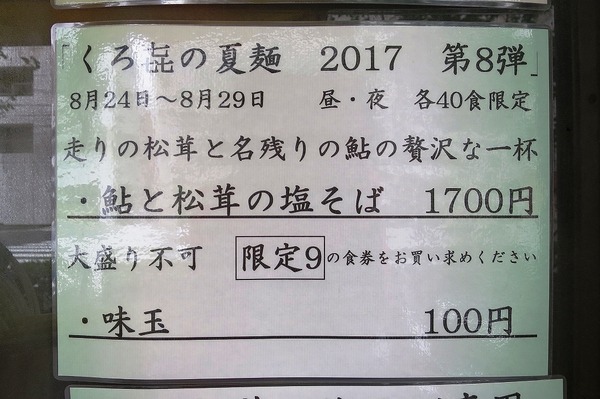 「くろ㐂の夏麺 2017 第8弾」
8月24日～8月29日 昼・夜 各40食限定
走りの松茸と名残りの鮎の贅沢な一杯
・鮎と松茸の塩そば 1700円
大盛り不可 限定9の食券をお買い求めください
・味玉 100円